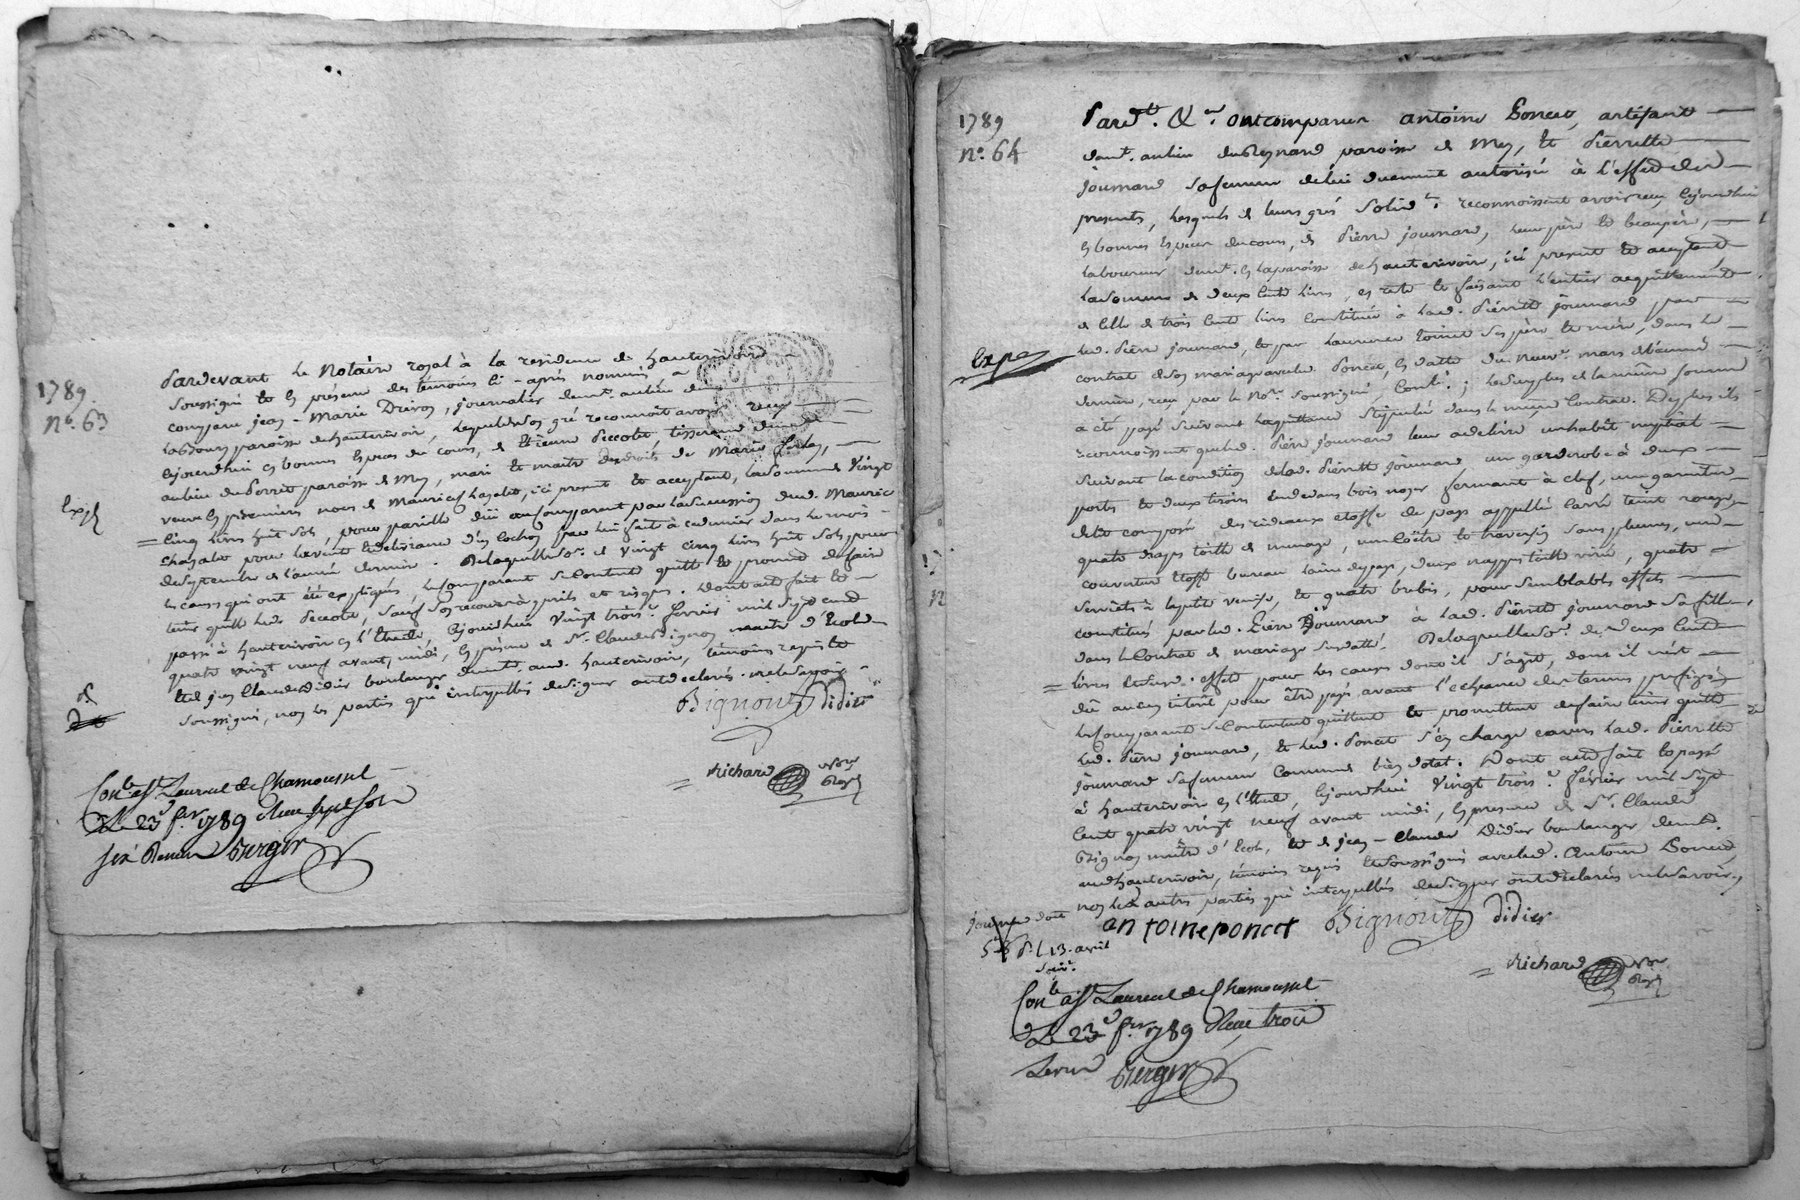 1789.
n°. 63
Pardevant Le Notaire royal à la residence de hauterivoire
soussigné et En présence des témoins Ci-après nommés, a
comparu jean-Marie , journalier demt. au lieu de
paroisse de hauterivoir, Lequel de son gré reconnoit avoir reçu
Cejourdhui En bonnes Espèces du cours, de Etienne Peccolet, tisserand demt.
au lieu du Perret paroisse de Mey, mari et maitre des droits de Marie
veuve En premieres noces de Maurice Chazalet, ici présent et acceptant, La somme de Vingt
Expé
Cinq livres huit sols, pour pareille düë au Comparant par La Succession dud. Maurice
Chazalet pour la vente et délivrance d'un Cochon par lui fait à ce dernier dans le mois
de Septembre de l'année derniere. De laquelle so͞e. de Vingt Cinq livres huit sols, pour
les causes qui ont été expliqués, le Comparant se Contente quitte et promet de faire
tenir quitte led. Peccolet, sauf son recours à périls et risques. Dont acte fait et
passé à hauterivoir En l'Etude, Cejourdhui Vingt trois. février mil Sept cent
quatre vingt neuf avant midi, En présence de Sr. Claude Bignon maitre d'Ecole
et de jean Claude Didier boulanger demts. aud. hauterivoir, témoins requis et
soussignés, non les parties qui interpellés de signer ont déclarés ne le savoir
Bignon Didier
Richard Nore Royal
Con.le et à St Laurent de Chamousset
Le 23 fer 1789 Reçu sept sols
six Deniers Berger
1789
n°. 64
Pardt. &er. ont comparu antoine Poncet, artisant
demt. au lieu du Reynard paroisse de Mey, et Pierrette
joumard sa femme de lui duement autorisée à l'effet des
présents, Lesquels de leurs grés Solidt. reconnoissent avoir reçu Cejourdhui
En bonnes Espèces du cours, de Pierre joumard, leur père et beaupère,
laboureur demt. En la paroisse de hauterivoire, ici présent et acceptant
La Somme de deux Cents livres, en reste et faisant l'entier acquittement
de Celle de trois Cents livres Constituée à lad. Pierrette joumard par
led. Pierre joumard, et par Laurence ses père et mère, dans le
Expé
contrat de son mariage avec led. Poncet, En datte du neuf. mars de l'année
derniere, reçu par le Nore. soussigné, Contlé. ; Le Surplus de la même Somme
a été payé Suivant la quittance Stipulée dans le même Contrat. De plus ils
reconnoissent que led. Pierre joumard leur a délivré un habit nuptial
suivant la condition de lad. Pierrette joumard, un garderobe à deux
portes et deux tiroirs Endedans bois noyer fermant à clef, une garniture
de lit composée des rideaux étoffe de pays appellée Carré teint rouge,
quatre draps toille de menage, un Coitre et traversin Sans plumes, une
couverture Etoffe bureau laine de pays, deux nappes toille , quatre
serviettes à la petite venise, et quatre brebis, pour Semblables effets
constitués par led. Pierre Joumard à lad. Pierrette joumard Sa fille,
dans le Contrat de mariage Susdatté. De laquelle So͞e. de Deux Cents
livres et desd. effets pour les causes dont il s'agit, dont il n'est
dû aucun intérêt pour être payé avant l'echeance des termes prefigés
les Comparants se Contentent quittent et promettent de faire tenir quitte
led. Pierre joumard, et led. Poncet s'en charge envers lad. Pierrette
joumard sa femme Comme bien dotal. Dont acte fait et passé
à hauterivoire En l'Etude, Cejourdhui Vingt trois. février mil Sept
Cent quatre vingt neuf avant midi, En présence de Sr. Claude
Bignon maitre d'Ecole, et de jean-Claude Didier boulanger demts.
aud. hauterivoire, témoins requis et soussignés avec led. Antoine Poncet
non les autres parties qui interpellés de signer ont déclarés ne le savoir
antoine poncet Bignon didier
13. avril
Richard Nore Royal
Con.le et à St Laurent de Chamousset
Le 23 fer 1789 Reçu trois
Livres Berger